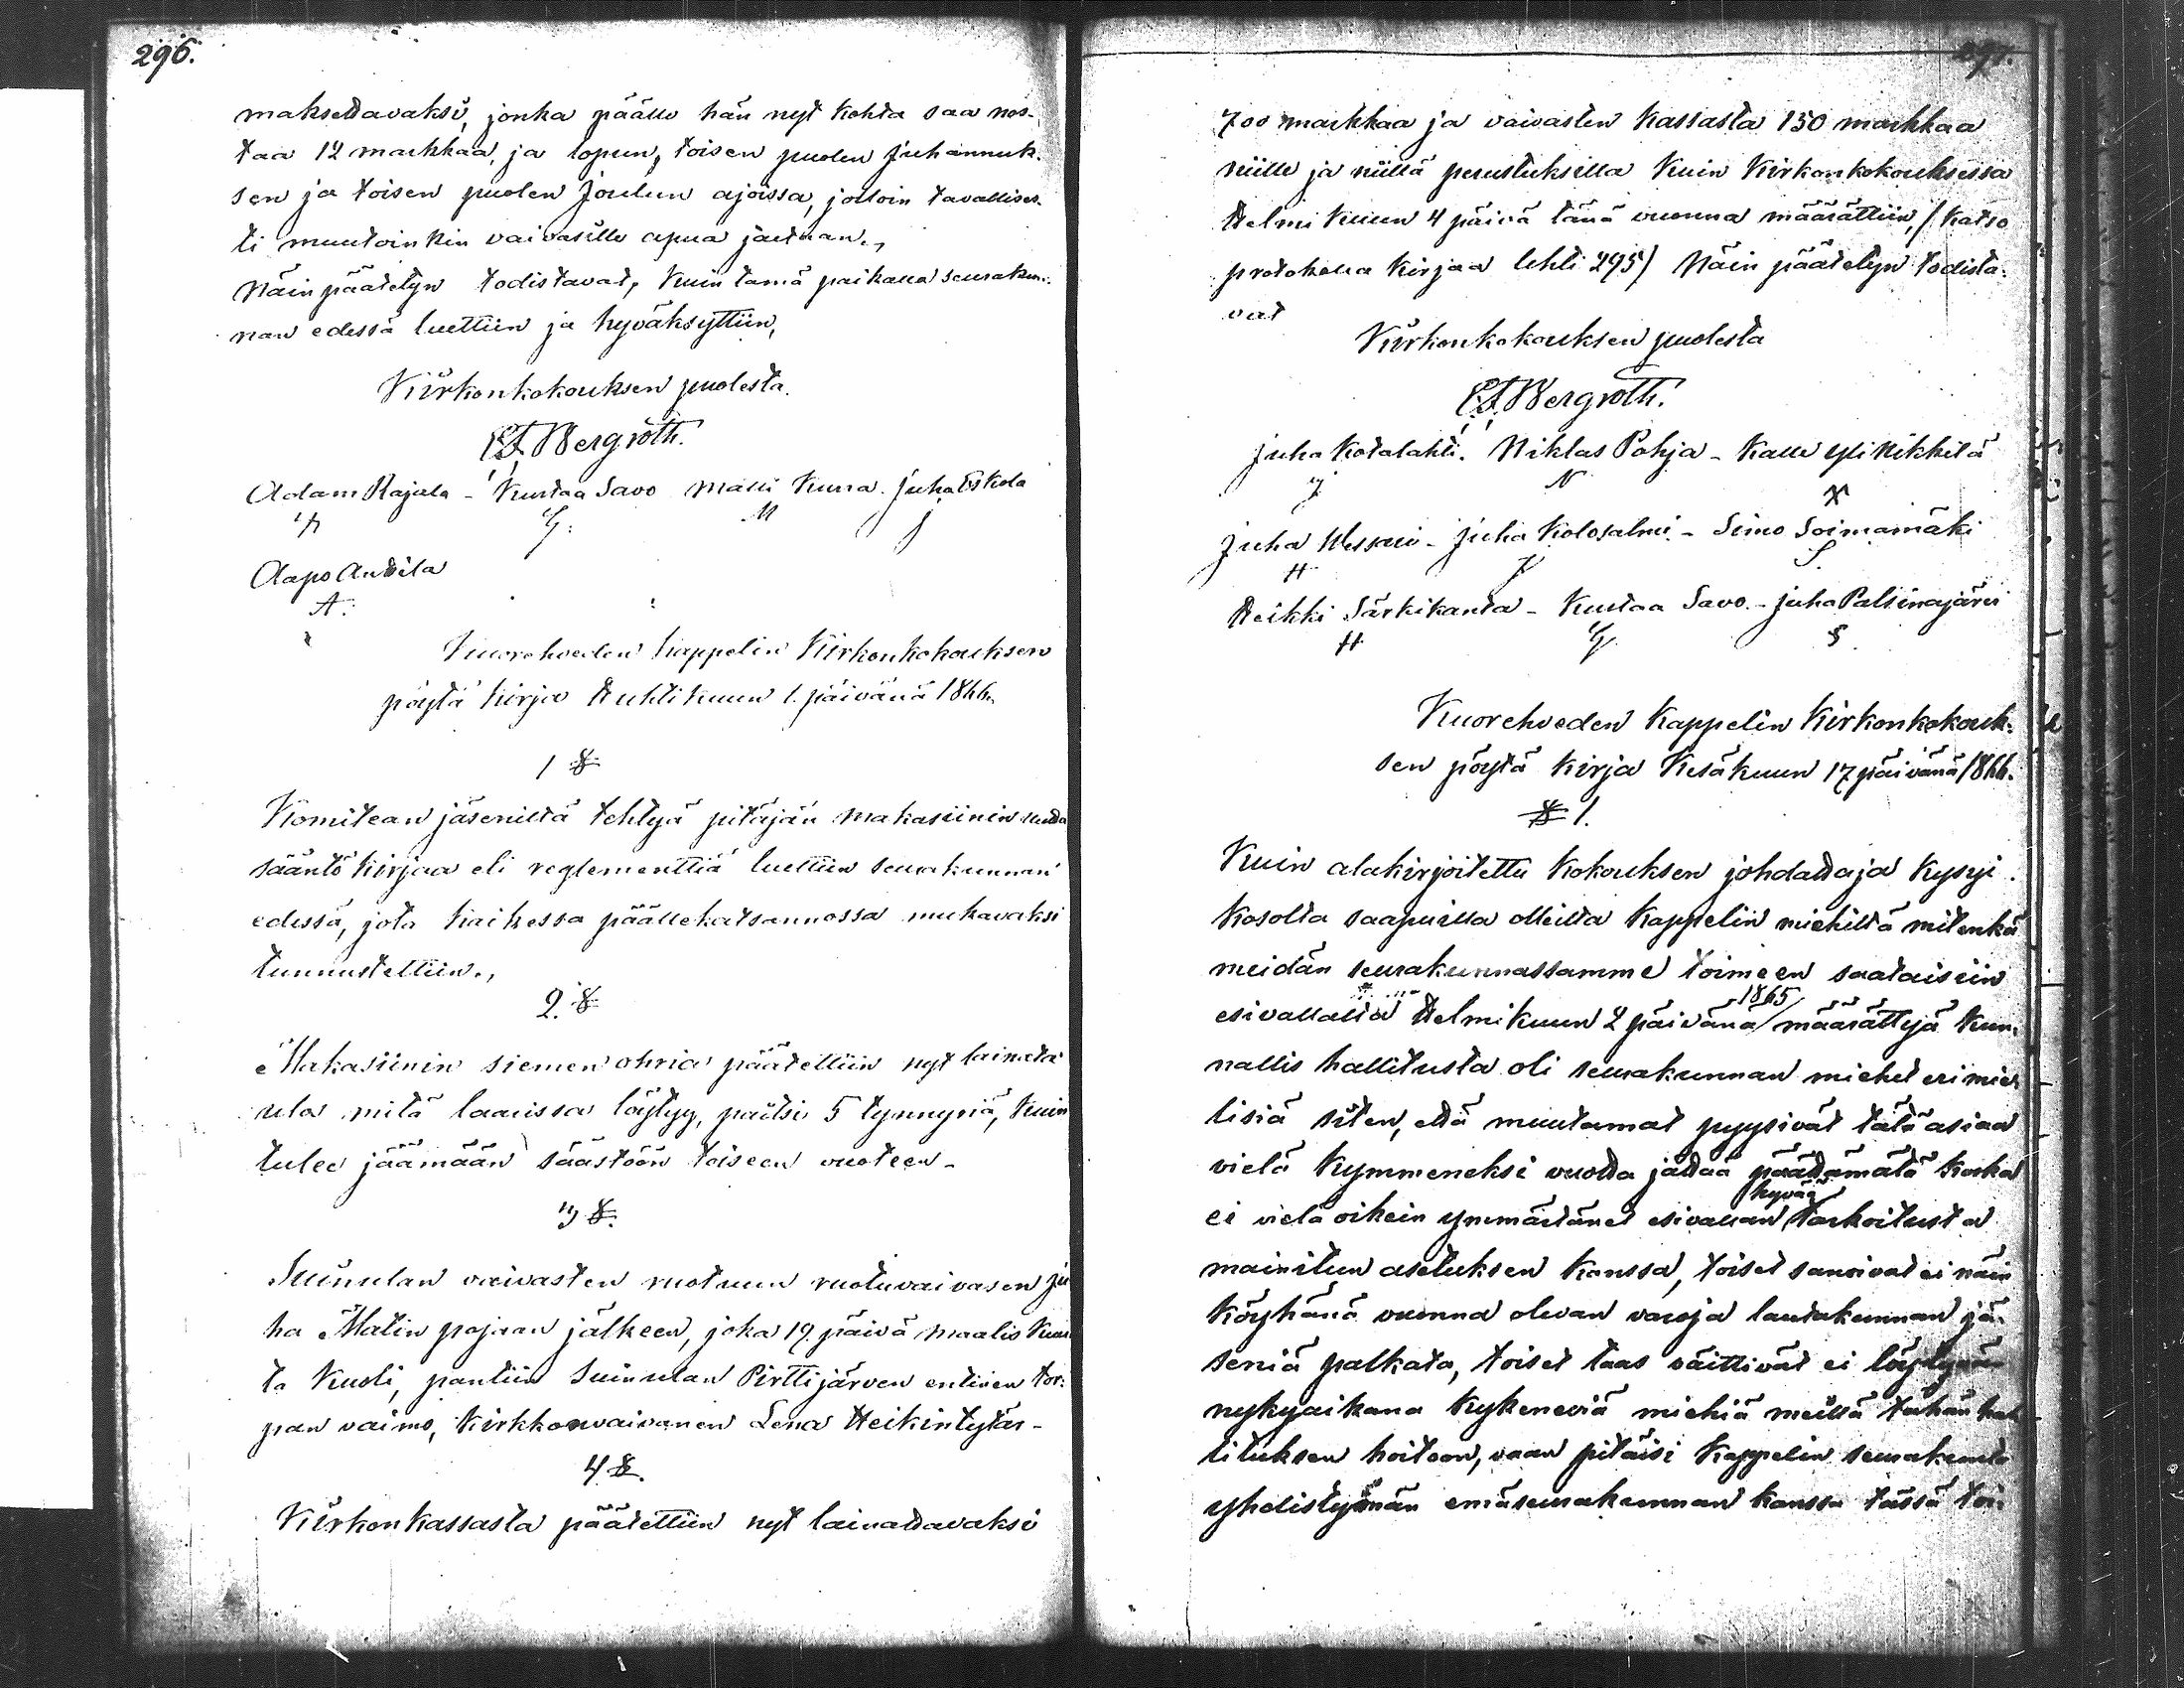 296.
maksettavaksi, jonka päälle hän nyt kohta saa nos-
taa 12 markkaa, ja lopun, toisen puolen Juhannuk-
sen ja toisen puolen Joulun ajoissa, jolloin tavallises-
ti muutoinkin vaivasille apua jaetaan.,
Näin päätetyn todistavat, kuin tämä paikalla seurakun-
nan edessä luettiin ja hyväksyttiin,
Kirkonkokouksen puolesta.
Bergroth.
Adam Rajala - Kustaa Savo Matti Kuura. Juha Eskola
A G: M J
Aapo Anttila
A:
Kuorehveden kappelin Kirkonkokouksen
pöytä kirja Huhtikuun 1. päivänä 1866.
1 §
Komitean jäseniltä tehtyä pitäjän makasiinin uutta
sääntö kirjaa eli reglementtiä luettiin seurakunnan
edessä, jota kaikessa päällekatsannossa mukavaksi
tunnustettiin.,
2. §
Makasiinin siemen ohria päätettiin nyt lainata
ulos mitä laarissa löytyy, paitsi 5 tynnyriä, kuin
tulee jäämään säästöön toiseen vuoteen -
3 §.
Suinulan vaivasten ruotuun ruotuvaivasen Ju
ha Matin pojan jälkeen, joka 19. päivä Maalis kuu
ta kuoli, pantiin Suinulan Pirttijärven entisen tor-
pan vaimo, kirkkonvaivanen Lena Heikintytär -
4 §.
Kirkonkassasta päätettiin nyt lainattavaksi
297.
700 markkaa ja vaivasten kassasta 150 markkaa
niille ja niillä perustuksilla kuin Kirkonkokouksessa
Helmi kuun 4 päivä tänä vuonna määrättiin, /: katso
protokolla kirjaa lehti 295/ Näin päätetyn todista-
vat
Kirkonkokouksen puolesta
Bergroth.
Juha Kotalahti. Niklas Pohja - Kalle Yli Kikkilä
J N
Juha - Juha Kolosalmi - Simo Soimamäki
H J S
Heikki Särkikanta - Kustaa Savo - Juha Palsinajärvi
H G
Kuorehveden Kappelin Kirkonkokouk-
sen pöytä kirja Kesäkuun 17 päivänä 1866.
§ 1.
Kuin alakirjoitettu kokouksen johdattaja kysyi
kosolta saapuilla olleilta Kappelin miehiltä mitenkä
meidän seurakunnassamme toimeen saataisiin
esivallalta Helmikuun 2 päivänä 1865 määrättyä kun-
nallis hallitusta oli seurakunnan miehet erimie-
lisiä siten, että muutamat pyysivät tätä asiaa
vielä kymmeneksi vuotta jättää päättämätä koska
ei vielä oikein ymmärtänet esivallan hyvää tarkoitusta
mainitun asetuksen kanssa, toiset sanoivat ei näin
köyhänä vuonna olevan varoja lautakunnan jä-
seniä palkata, toiset taas väittivät ei löytyvän
nykyaikana kykeneviä miehiä meillä tähän hal
lituksen hoitoon, vaan pitäisi Kappelin seurakunta
yhdistymän emäseurakunnan kanssa tässä toi-